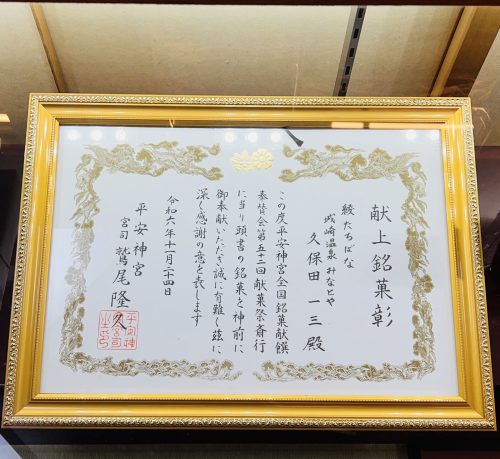 献上銘菓彰
綾たちばな
城崎温泉 みなとや
久保田 一三 殿
この度平安神宮全国銘菓献饌
奉賛会第五十二回献菓祭斎行
に当り頭書の銘菓を神前に
御奉献いただき誠に有難く茲に
深く感謝の意を表します
令和六年十一月二十四日
平安神宮
宮司 鷲尾隆久